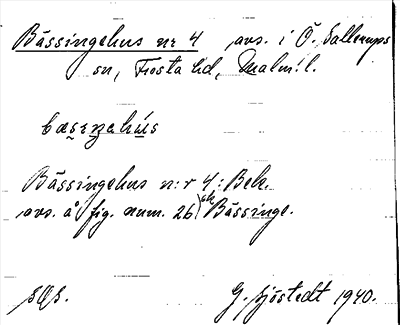 Bässingehus nr 4 avs. i Ö. Sallerups
sn, Frosta hd, Malm. l.
bæsıŋehús
Bässingehus n:r 4: Beh.
avs. å fig. num. 26 sk Bässinge.
G. Sjöstedt 1940.